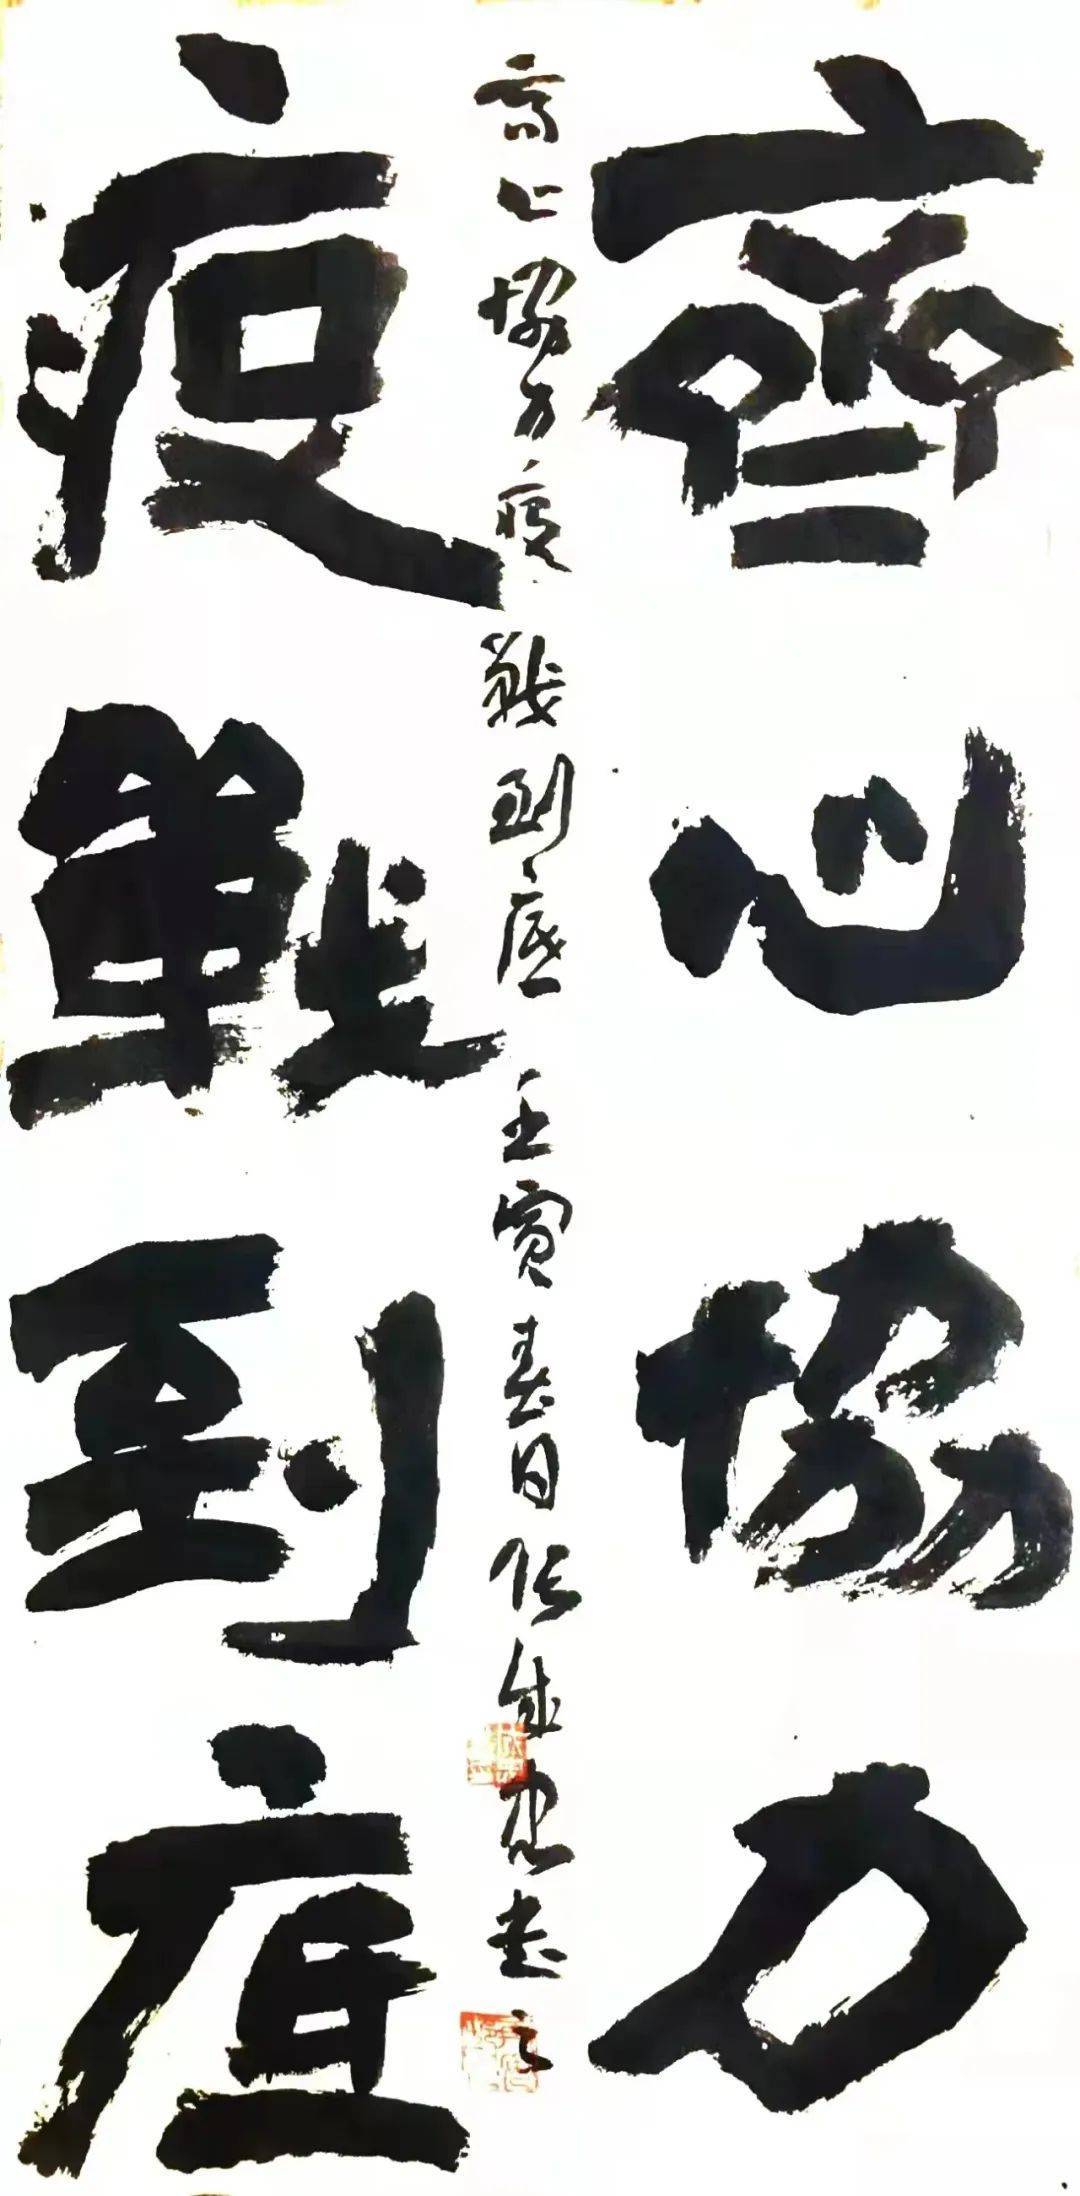 齊心協力
疫戰到底
齊心協力疫戰到底 壬寅春日 成忠書之